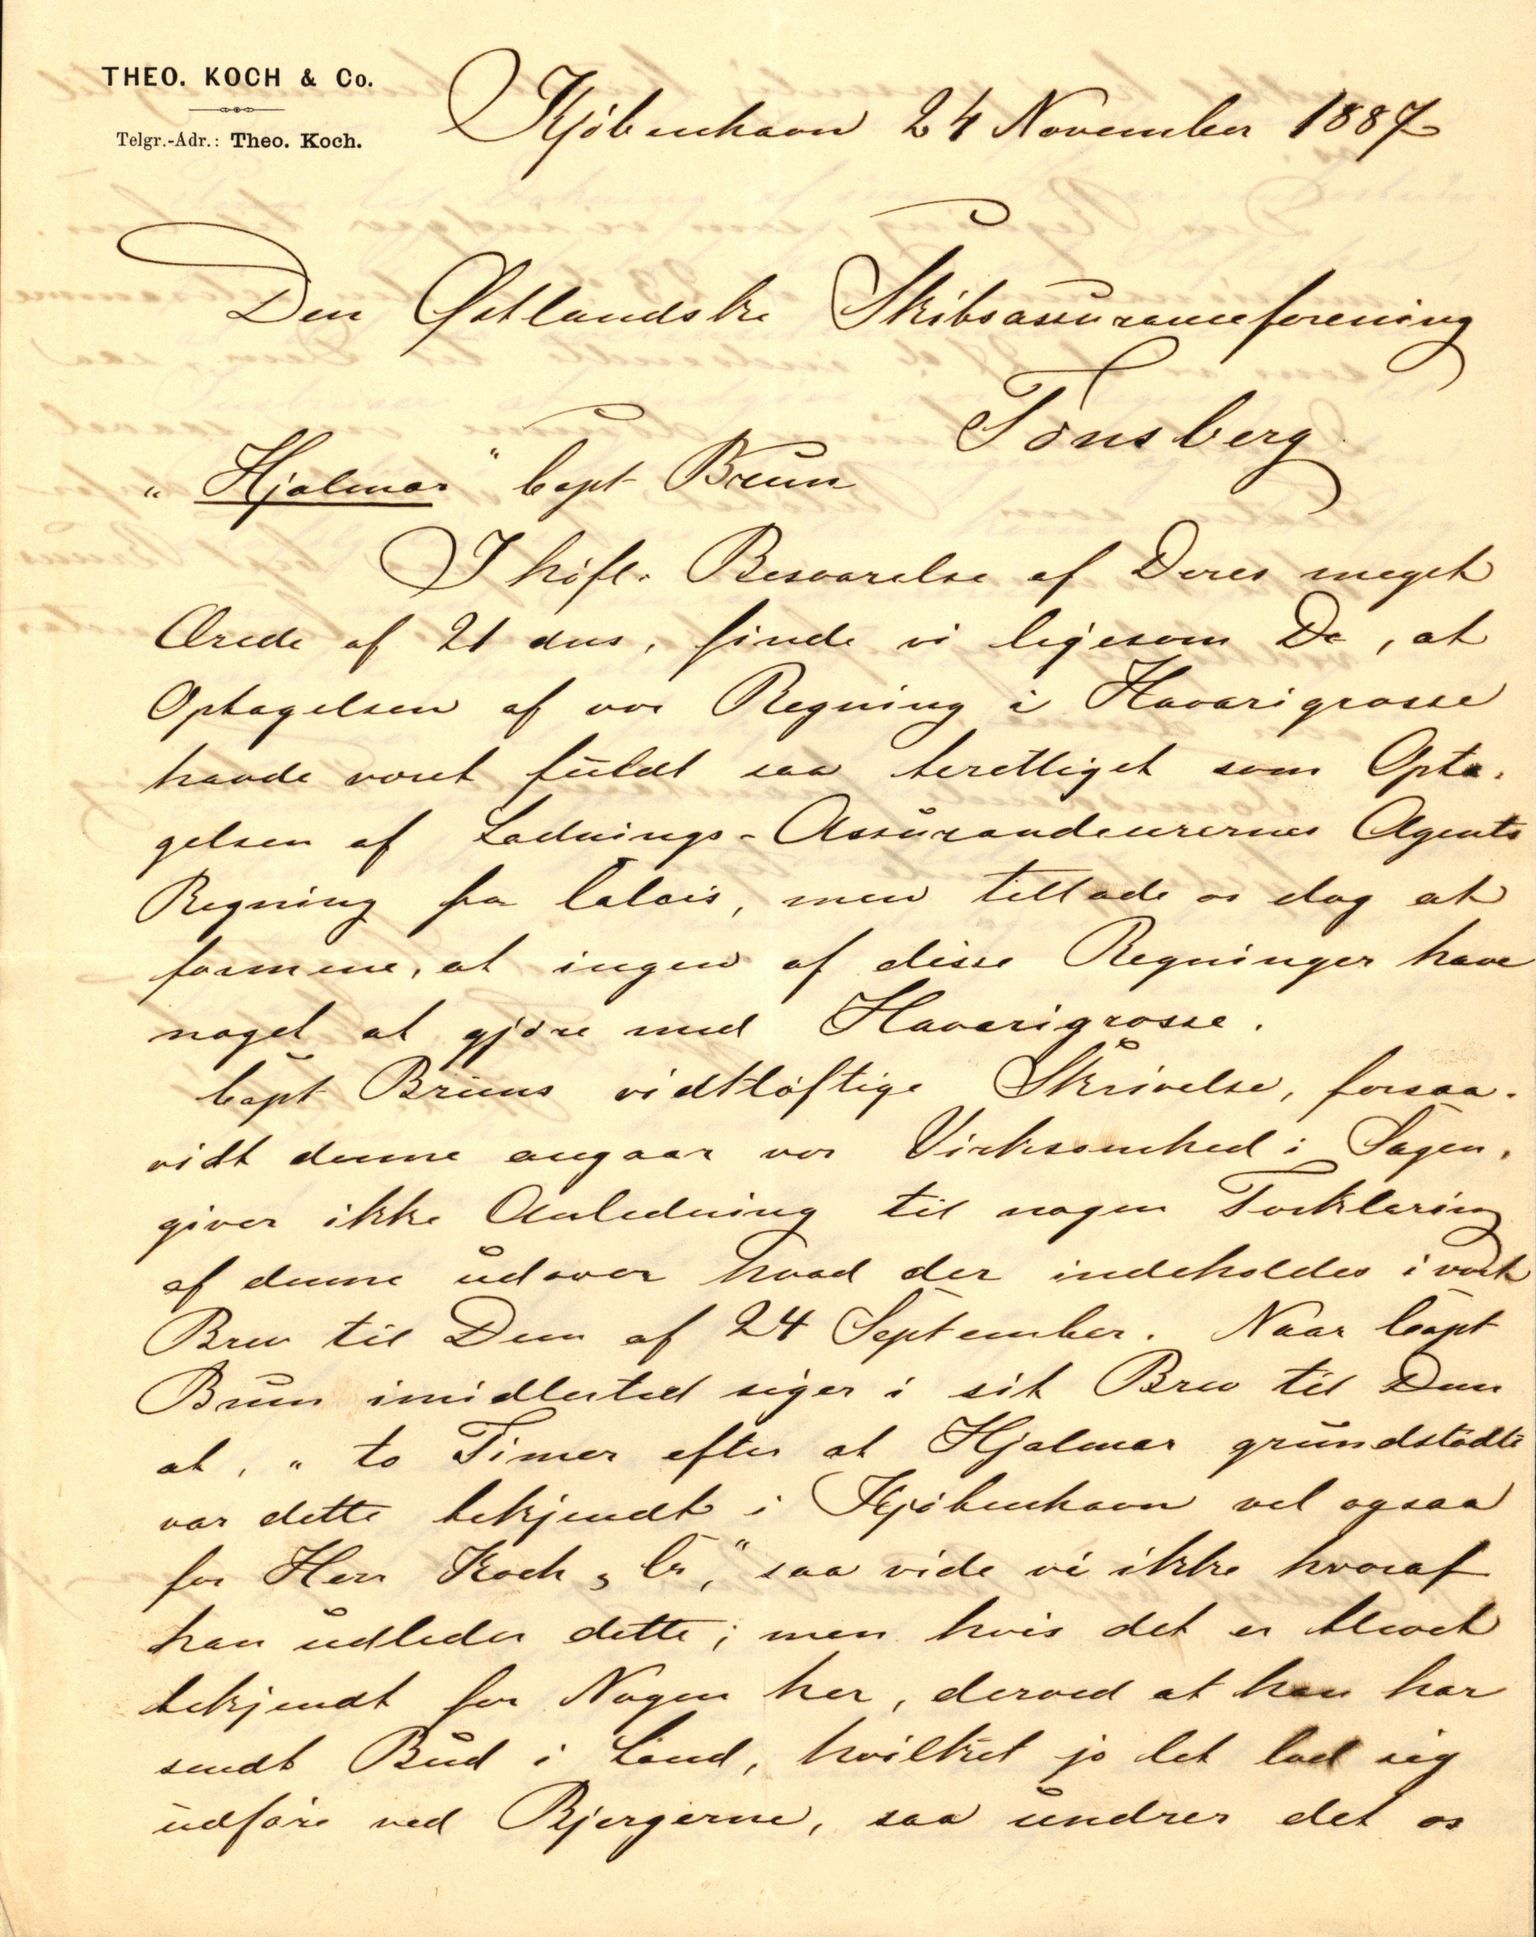 THEO. KOCH & Co.
Telgr.-Adr.: Theo. Koch.
Kjöbenhavn 24 November 1887
Den Østlandske Skibsassuranceforening
Tönsberg
"Hjalmar" Capt Bruun
I höfl. Besvarelse af Deres meget
Ærede af 21 dns, finde vi ligesom De, at
Optagelsen af vor Regning i Havarigrosse
havde været fuldt saa berettiget som Opta-
gelsen af Ladnings-Assurandeurernes Agents
Regning fra Calais, men tillade os dog at
formene, at ingen af disse Regninger have
noget at gjöre med Havarigrosse.
Capt Bruuns vidtlöftige Skrivelse, forsaa-
vidt denne angaar vor Virksomhed i Sagen,
giver ikke Anledning til nogen Forklaring
af denne udover hvad der indeholdes i vort
Brev til Dem af 24 September. Naar Capt
Bruun imidlertid siger i sit Brev til Dem
at, "to Timer efter at Hjalmar grundstödte
var dette bekjendt i Kjöbenhavn vel ogsaa
for Herr Koch & Co," saa vide vi ikke hvoraf
han udleder dette; men hvis det er blevet
bekjendt for Nogen her, derved at han har
sendt Bud i Land, hvilket jo let lod sig
udföre ved Bjergerne, saa undrer det os